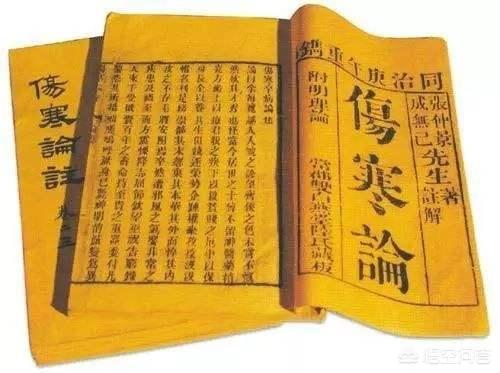 同治庚午年重鐫
張仲景先生著
成無己先生註解
傷寒論
附明理論
常郡雙白燕堂陸氏藏板
傷寒卒病論集
論曰余每覽越人入虢之診望齊侯之色未嘗不慨
然歎其才秀也怪當今居世之士曾不留神醫藥精
究方術上以療君親之疾下以救貧賤之厄中以保
身長全以養其生但競逐榮勢企踵權豪孜孜汲汲
惟名利是務崇飾其末忽棄其本華其外而悴其內
皮之不存毛將安附焉卒然遭邪風之氣嬰非常之
疾患及禍至而方震慄降志屈節欽望巫祝告窮歸
天束手受敗賫百年之壽命持至貴之重器委付凡
醫恣其所措咄嗟嗚呼厥身已斃神明消滅變為異
傷寒論註
卷之
悟空问答